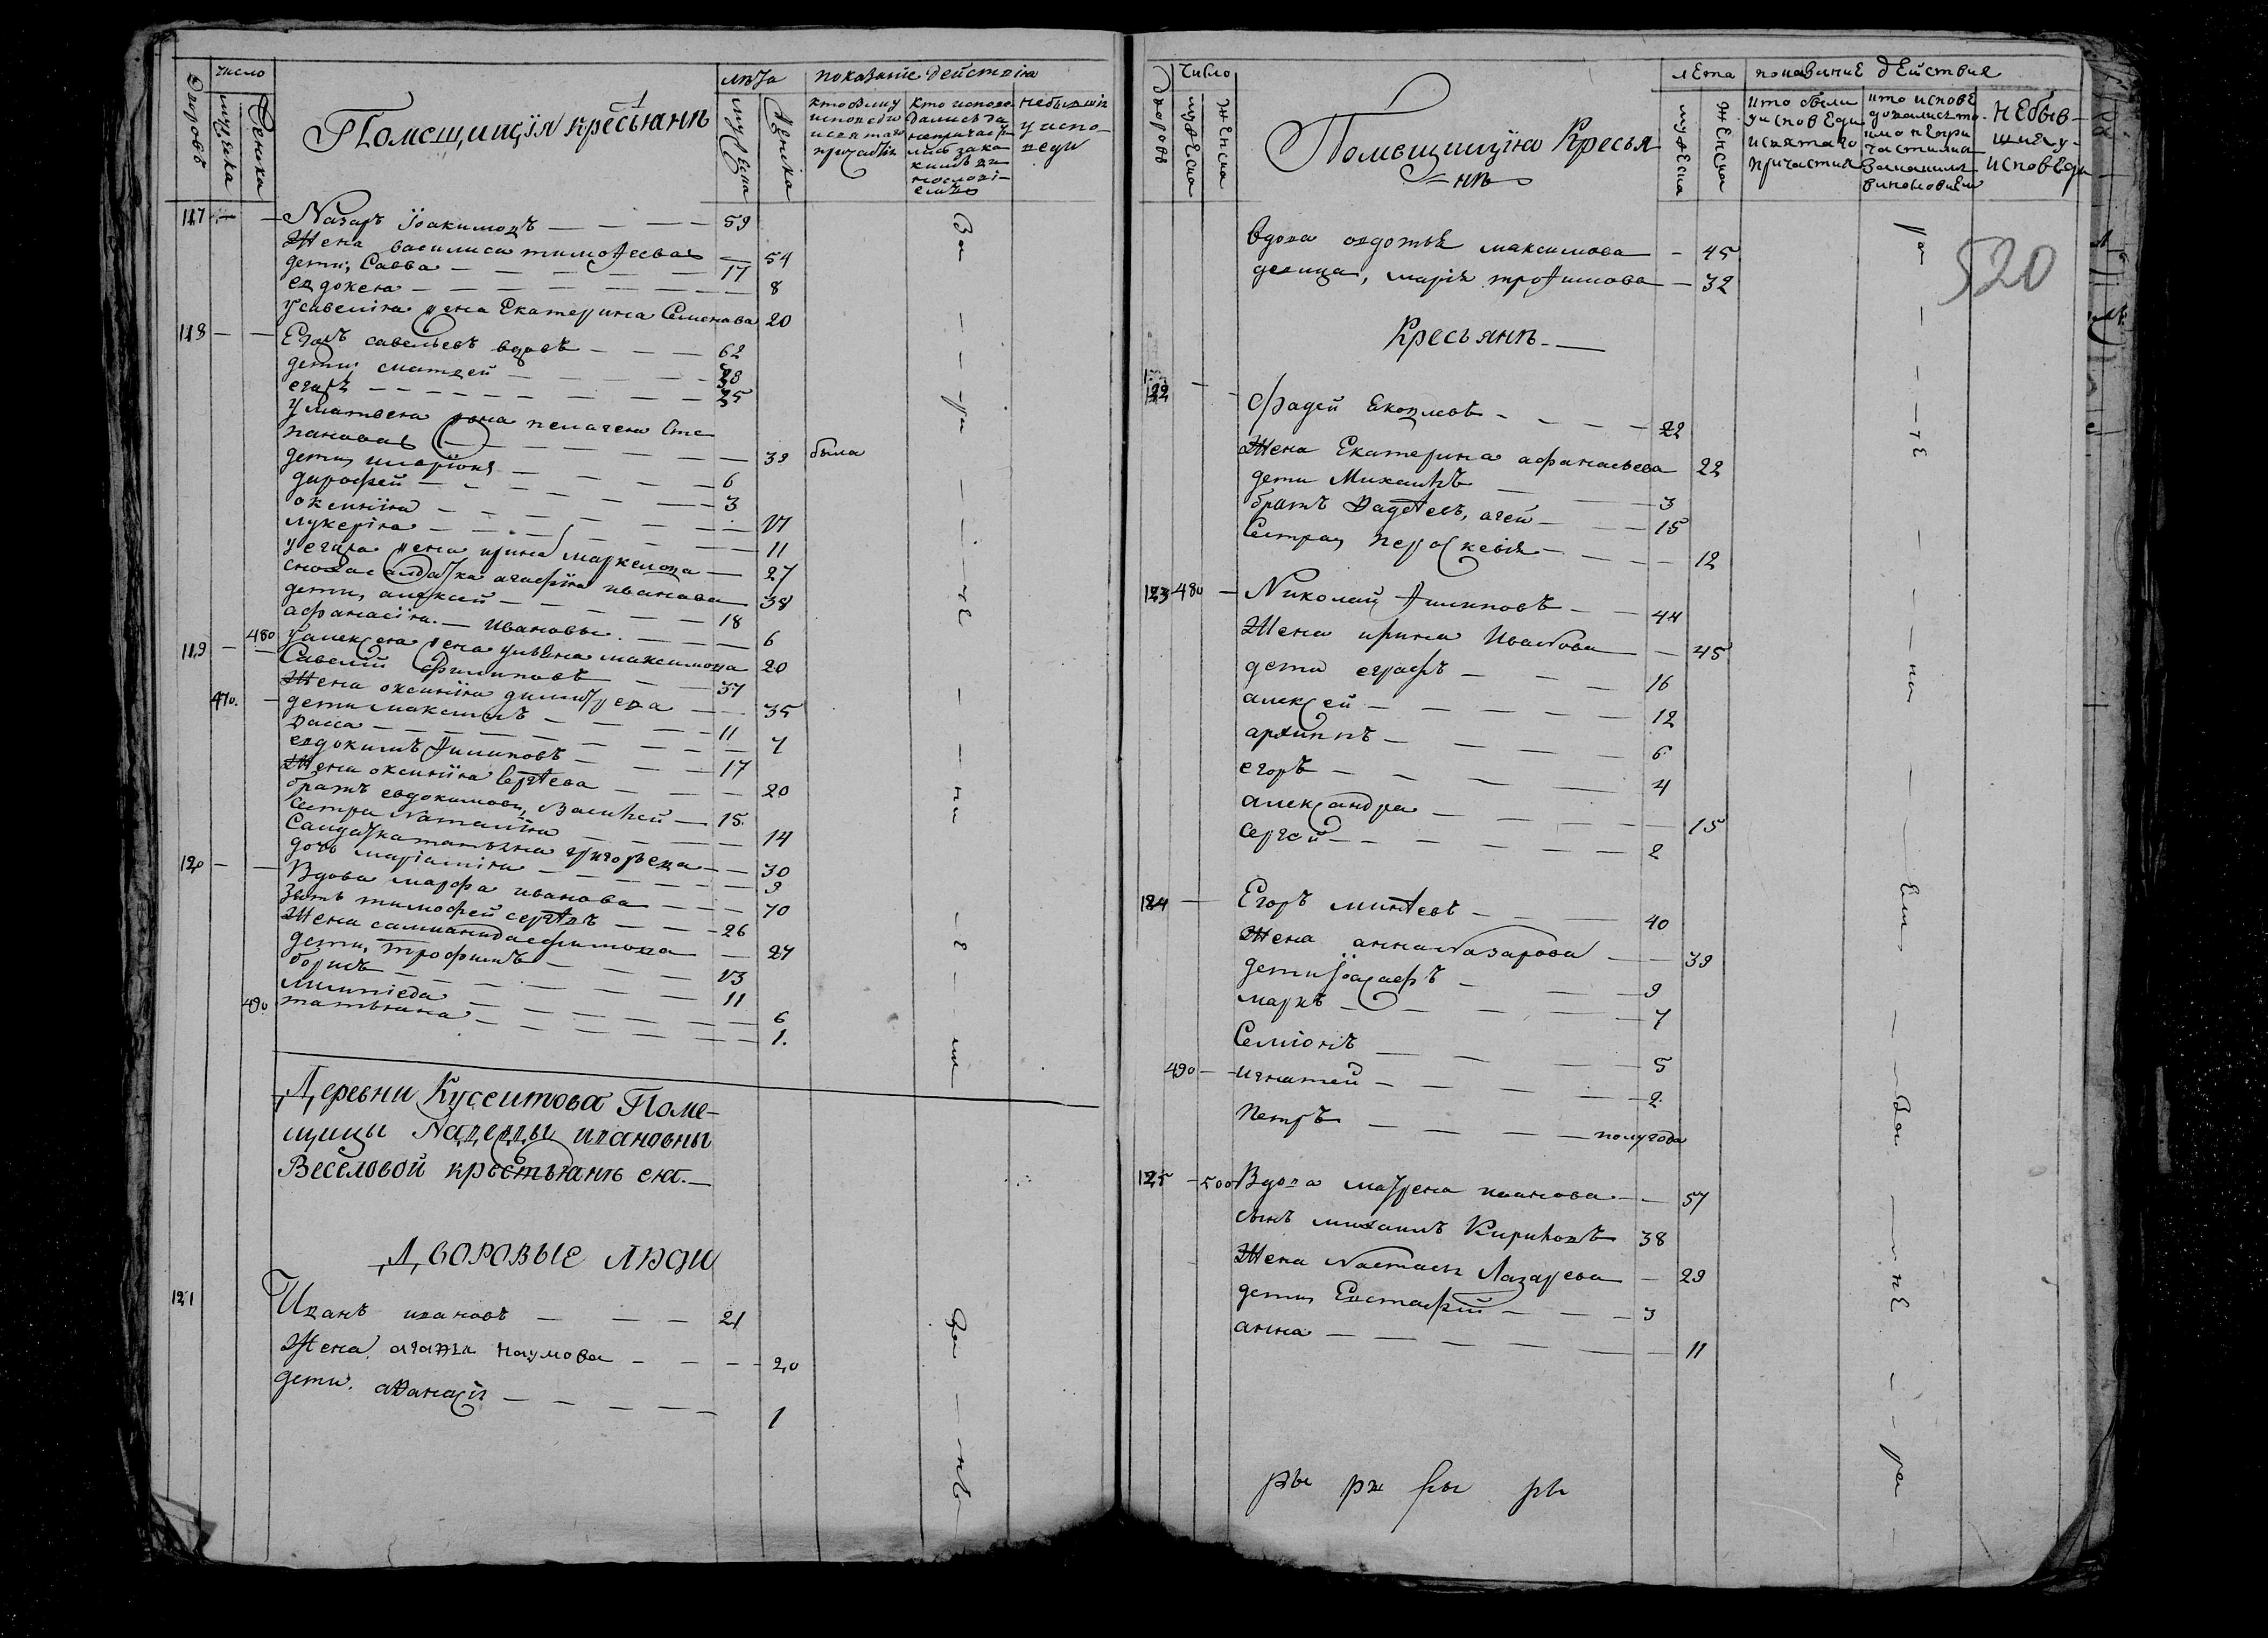 Дворовъ
число
мужеска
женска
Помещищїя кресьянѣ
лѣта
мужеска
женска
показанїе действїя
кто былу исповеди исвятаго причастїя
кто исповедались да непричастились закакимъ винословiемъ
небывшiя у исповеди
117 — — Назаръ їоакимовъ — — — — 59
Жена василиса тимоѳеева — 54
дети, Савва — — — — — 17
евдокея — — — — — — — 8
усавелїя жена Екатерина Семенова 20
118 — — Егоръ савельевъ вдовъ — — — 62
дети; матвей — — — — — 28
егоръ — — — — — — — — 25
уматвея жена пелагея Сте
панова — — — — — — — 39 была
дети, иларїонъ — — — — 6
дорофей — — — — — — 3
оксинїя — — — — — — 17
лукерїя — — — — — — — 11
уегора жена ирина маркелова — 27
сноха салдатка агафїя иванова — 38
дети, алексей — — — — 18
афанасїя — Ивановы — — — 6
480 уалексея жена ульяна максимова 20
119 — — Савелїй Филиповъ — — 37
Жена оксинїя димитрева — — 35
470. — дети максимъ — — — — 11
васса — — — — — — — 7
евдокимъ ѳилиповъ — — — 17
Жена оксинїя Сергѣева — — — 20
братъ евдокимовъ, Василей — 15.
Сестра Наталїя — — — — 14
Салдатка татьяна григорьева — — 30
дочь марїамїя — — — — — 9
120 — — Вдова марфа иванова — — — 70
зять тимофей сергѣвъ — — — 26
Жена саломанида ефимова — 27
дети, трофимъ — — — — 13
борисъ — — — — — — 11
— — — — — — 6
490 татьяна — — — — — — 1.
Деревни Кусеитова Поме-
щицы Надежды ивановны
Веселовой крестьянѣ ея. —
Дворовые люди
121 Иванъ ивановъ — — — 21
Жена, агаѳья наумова — — — 20
дети. аѳанасїя — — — — — 1
Дворовъ
число
мужеска
женска
Помещищїя Кресья
= нѣ
лета
мужеска
женска
показание действия
кто были уисповеди исвятаго причастия
кто исповедовались токмо непричастились закакимъ винословиемъ
небыв-
шие у-
исповеди
520
вдова авдотья максимова — 45
девица, марїя троѳимова — 32
Кресьянѣ. —
122 — — Фадей Яковлевъ — — — — 22
Жена Екатерина афанасьева 22
дети Михаилъ — — — 3
братъ Фадѣевъ, агей — — — 15
Сестра, пероскевїя — — — — 12
123 480 — Николай ѳилиповъ — — 44
Жена ирина Иванова — — 45
дети еграфъ — — — 16
алексей — — — — — 12
архиппъ — — — — 6
егоръ — — — — — 4
александра — — — — — 15
сергей — — — — — — 2
124 — Егоръ минѣевъ — — — 40
Жена анна Назарова — — 39
дети їоасафъ — — — 9
маркъ — — — — — 7
Семїонъ — — — — 5
490 — — игнатей — — — — 2
петръ — — — — — полугода
125 — 500 Вдова матрена иванова — — 57
сынъ михаилъ Кириловъ 38
Жена Настасья Лазарева — 29
дети, Евстафїй — — — 3
анна — — — — — — 11